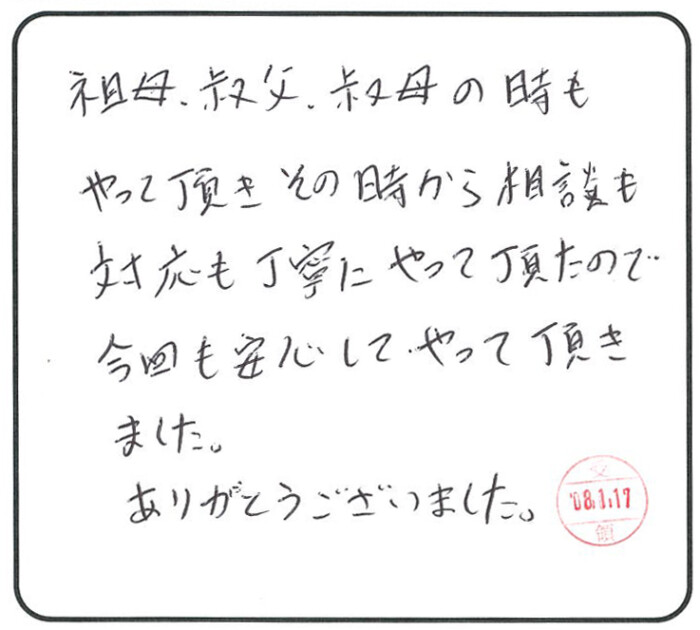 祖母、叔父、叔母の時も
やって頂きその時から相談も
対応も丁寧にやって頂たので
今回も安心してやって頂き
ました。
ありがとうございました。
受
'08.1.17
領